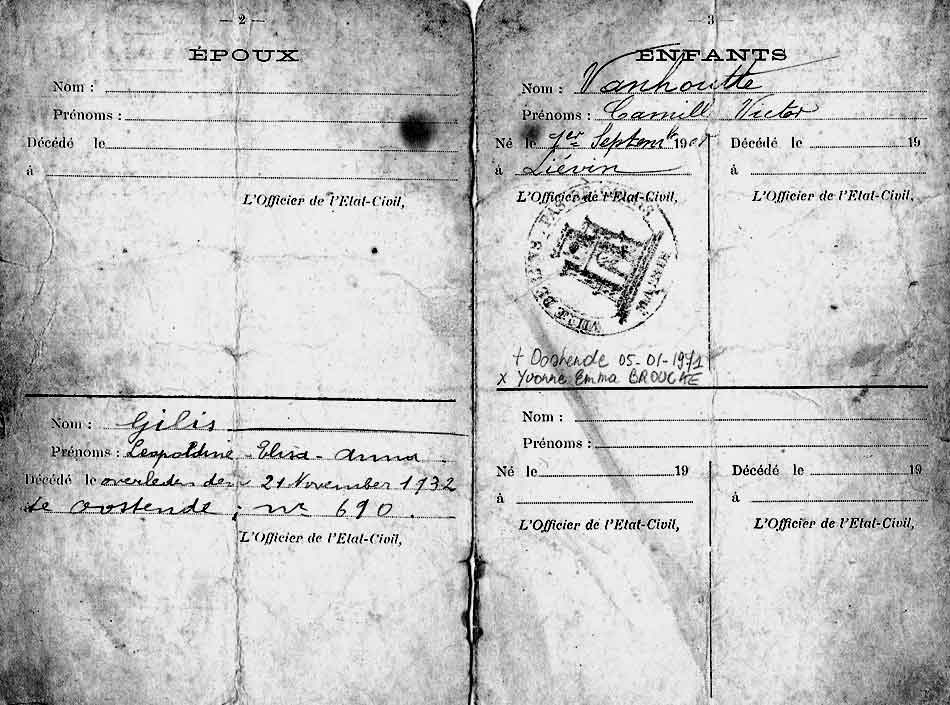 — 2 —
ÉPOUX
Nom :
Prénoms :
Décédé le
à
L'Officier de l'Etat-Civil,
Nom : Gilis
Prénoms : Leopoldine - Elisa - Anna
Décédé le overleden den 21 November 1932
te Oostende ; nr 690.
L'Officier de l'Etat-Civil,
— 3 —
ENFANTS
Nom : Vanhoutte
Prénoms : Camill Victor
Né le 1er Septembre 1908 Décédé le 19
à Liévin à
L'Officier de l'Etat-Civil, L'Officier de l'Etat-Civil,
VILLE DE
† Oostende 05-01-1971
x Yvonne Emma BROUCKE
Nom :
Prénoms :
Né le 19 Décédé le 19
à à
L'Officier de l'Etat-Civil, L'Officier de l'Etat-Civil,